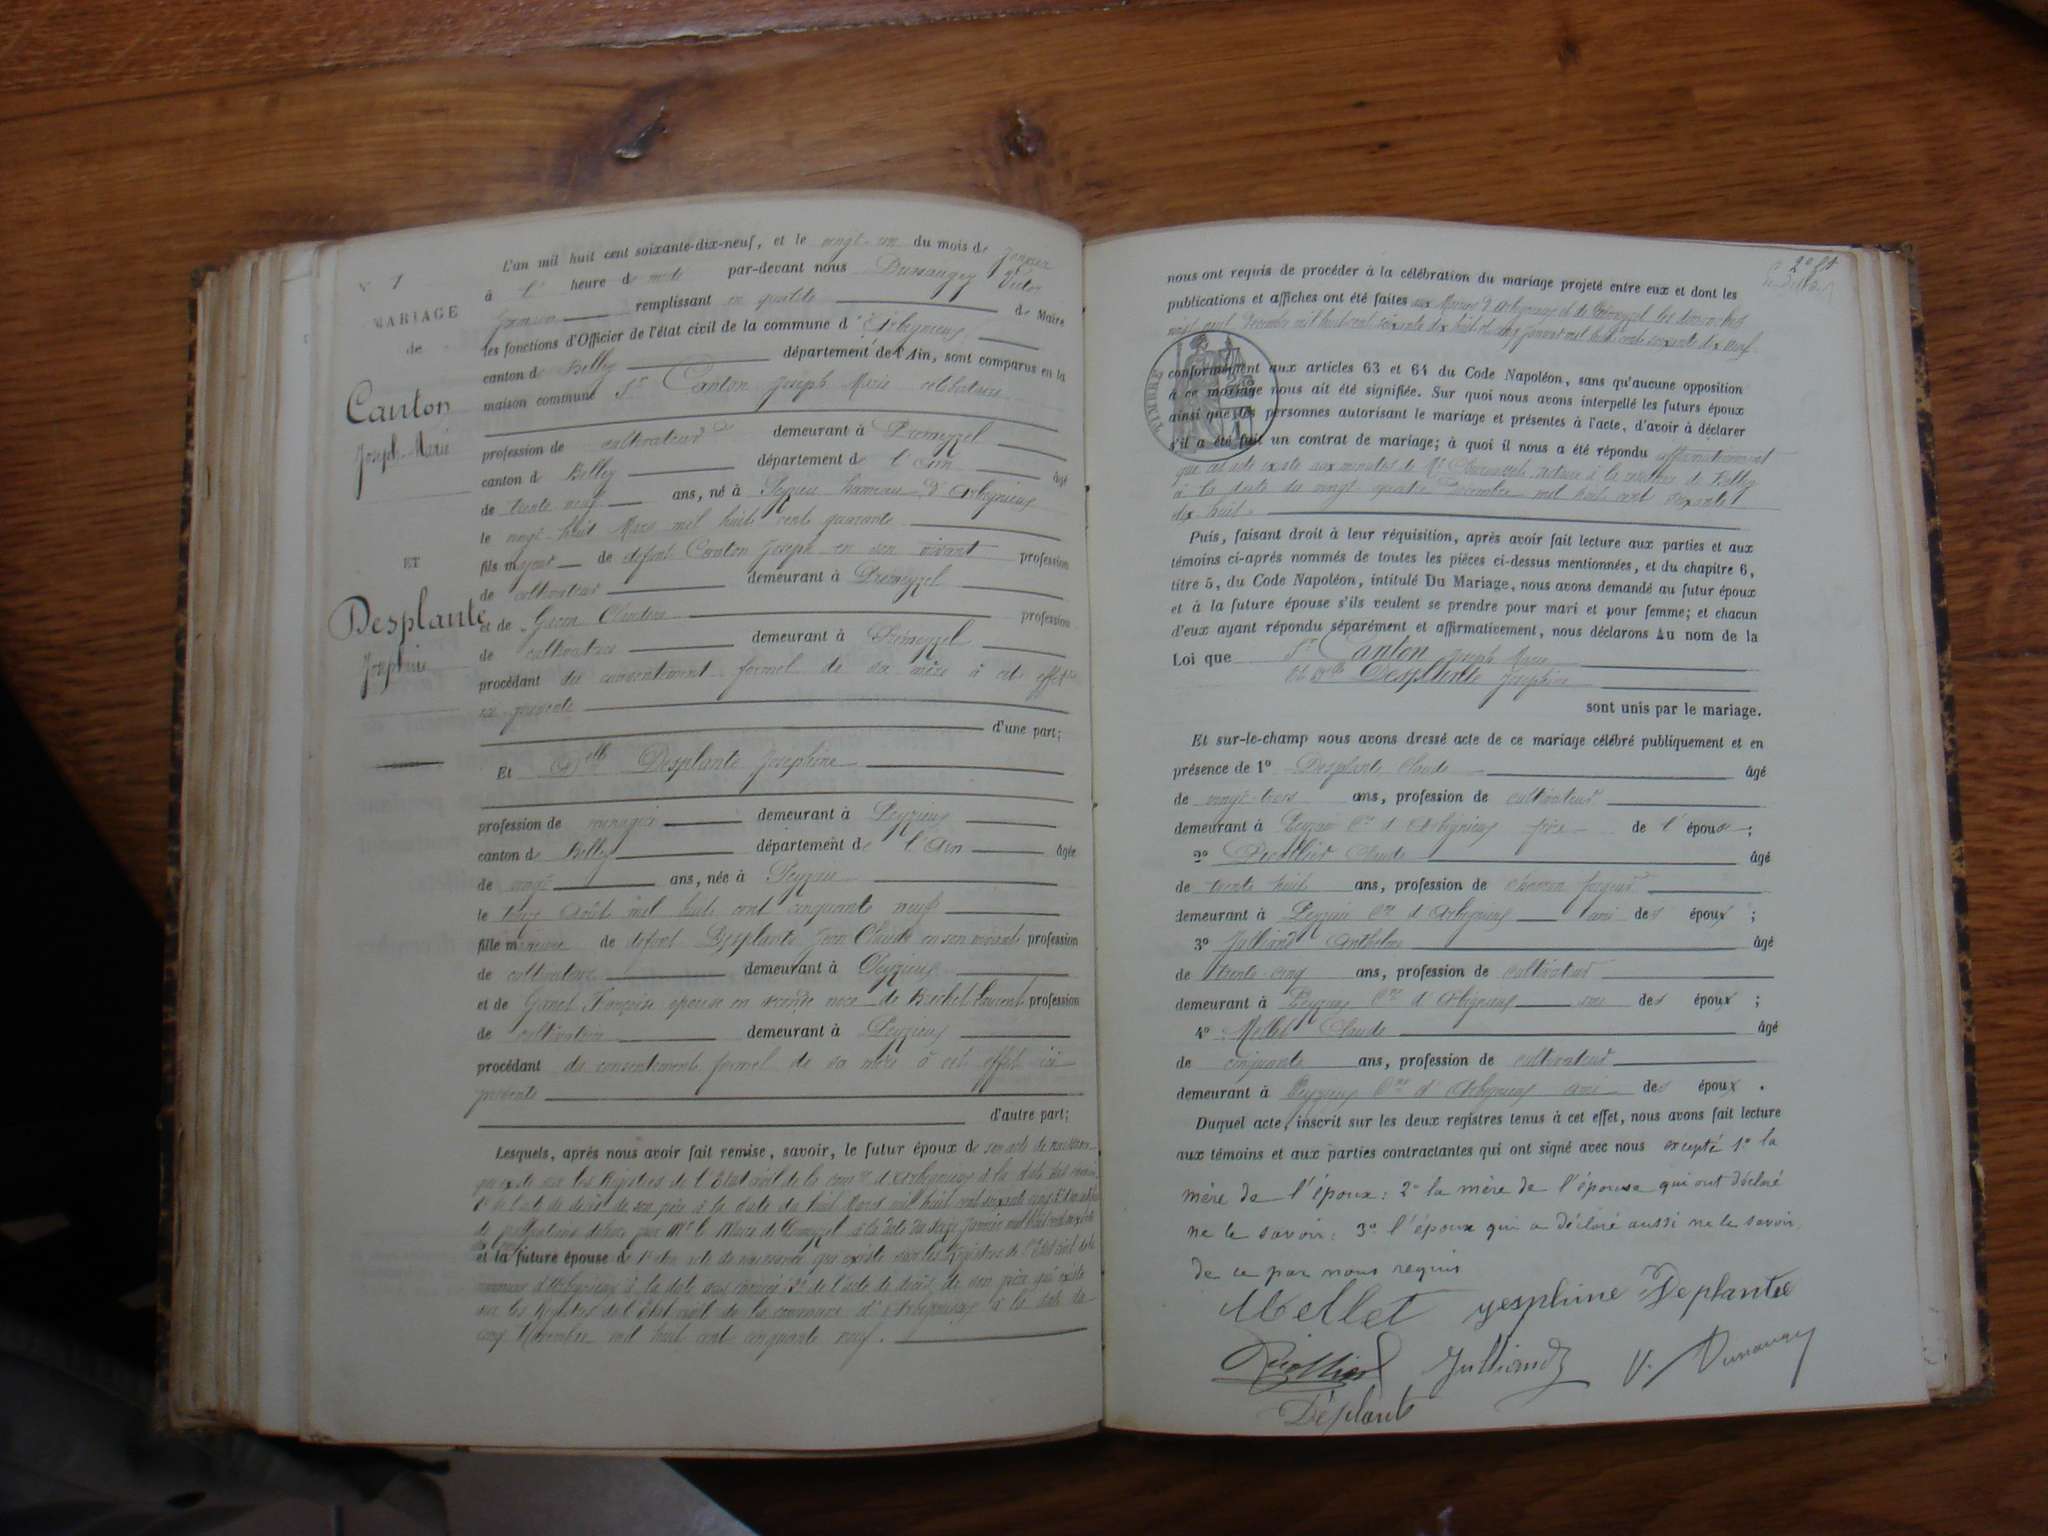 N° 1
MARIAGE
de
Canton
Joseph Marie
ET
Desplante
Joséphine
L'an mil huit cent soixante-dix-neuf, et le vingt-un du mois de Janvier
à heure de par-devant nous Dumaurey Victor
remplissant en qualité de Maire
les fonctions d'Officier de l'état civil de la commune d'Arbignieu
canton de Belley département de l'Ain, sont comparus en la
maison commune Sr Canton Joseph Marie célibataire
profession de cultivateur demeurant à Prémeyzel
canton de Belley département de l'Ain âgé
de trente neuf ans, né à Peyzieu hameau d'Arbignieu
le vingt-huit Mars mil huit cent quarante
fils majeur de défunt Canton Joseph en son vivant profession
de cultivateur demeurant à Prémeyzel
et de profession
de cultivatrice demeurant à Prémeyzel
procédant du consentement formel de sa mère à cet effet
ici présente
d'une part;
Et Delle Desplante Joséphine
profession de ménagère demeurant à Peyzieu
canton de Belley département de l'Ain âgée
de vingt ans, née à Peyzieu
le Août mil huit cent cinquante neuf
fille mineure de défunt Desplante Jean Claude en son vivant profession
de cultivateur demeurant à Peyzieu
et de Françoise épouse en seconde noce de Laurent profession
de cultivatrice demeurant à Peyzieu
procédant du consentement formel de sa mère à cet effet ici
présente
d'autre part;
Lesquels, après nous avoir fait remise, savoir, le futur époux de son acte de naissance
qui existe sur les Registres de l'Etat civil de la comne d'Arbignieu à la date
de l'acte de décès de son père à la date du huit Mars mil huit cent soixante cinq
de publications délivré par Mr le Maire de Prémeyzel à la date du
et la future épouse de 1° son acte de naissance qui existe sur les Registres de l'Etat civil de la
commune d'Arbignieu à la date 2° de l'acte de décès de son père qui existe
sur les Registres de l'Etat civil de la commune d'Arbignieu à la date du
cinq Novembre mil huit cent cinquante neuf.
2e ft
nous ont requis de procéder à la célébration du mariage projeté entre eux et dont les
publications et affiches ont été faites aux Mairies d'Arbignieu et de Prémeyzel les dimanches
Décembre mil huit cent soixante dix huit et Janvier mil huit cent soixante dix neuf
TIMBRE
conformément aux articles 63 et 64 du Code Napoléon, sans qu'aucune opposition
à ce mariage nous ait été signifiée. Sur quoi nous avons interpellé les futurs époux
ainsi que les personnes autorisant le mariage et présentes à l'acte, d'avoir à déclarer
s'il a été fait un contrat de mariage; à quoi il nous a été répondu affirmativement
que cet acte existe aux minutes de Me notaire à la résidence de Belley
à la date du vingt quatre Décembre mil huit cent soixante
dix huit.
Puis, faisant droit à leur réquisition, après avoir fait lecture aux parties et aux
témoins ci-après nommés de toutes les pièces ci-dessus mentionnées, et du chapitre 6,
titre 5, du Code Napoléon, intitulé Du Mariage, nous avons demandé au futur époux
et à la future épouse s'ils veulent se prendre pour mari et pour femme; et chacun
d'eux ayant répondu séparément et affirmativement, nous déclarons Au nom de la
Loi que Sr Canton Joseph Marie
et Delle Desplante Joséphine
sont unis par le mariage.
Et sur-le-champ nous avons dressé acte de ce mariage célébré publiquement et en
présence de 1° Desplante Claude âgé
de vingt-trois ans, profession de cultivateur
demeurant à Peyzieu Cne d'Arbignieu frère de l'épouse;
2° Claude âgé
de trente huit ans, profession de
demeurant à Peyzieu Cne d'Arbignieu ami des époux;
3° Julliand Anthelme âgé
de trente-cinq ans, profession de cultivateur
demeurant à Peyzieu Cne d'Arbignieu ami des époux;
4° Mellet Claude âgé
de cinquante ans, profession de cultivateur
demeurant à Peyzieu Cne d'Arbignieu ami des époux.
Duquel acte, inscrit sur les deux registres tenus à cet effet, nous avons fait lecture
aux témoins et aux parties contractantes qui ont signé avec nous excepté 1° la
mère de l'époux: 2° la mère de l'épouse qui ont déclaré
ne le savoir: 3° l'époux qui a déclaré aussi ne le savoir
de ce par nous requis
Mellet Yosphine Deplante
Julliand V. Dumaurey
Déplante